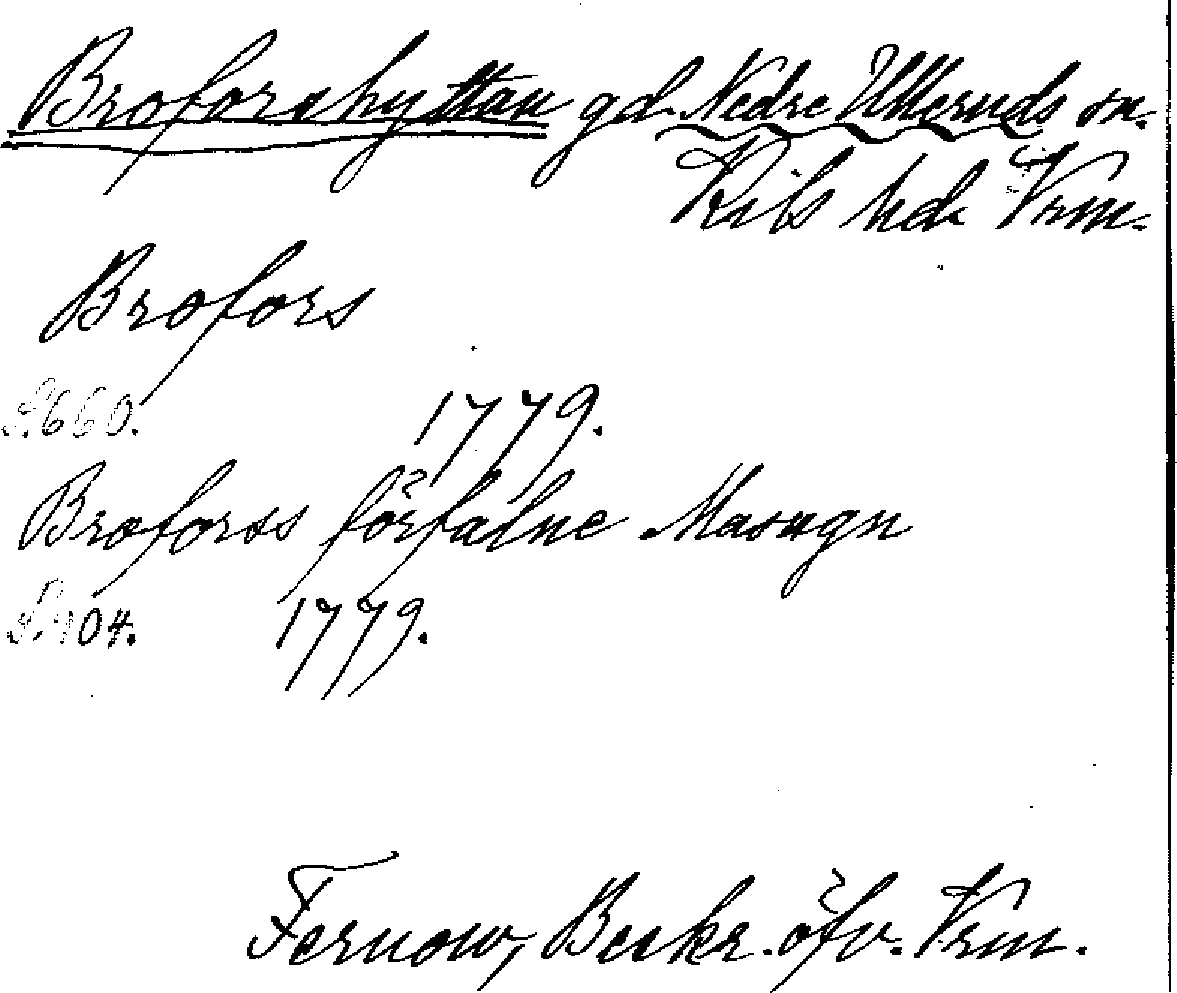 Broforshyttan gd Nedre Ulleruds sn.
Kils hd. Vrm.
Brofors
S. 660.
1779.
Broforss förfalne Masugn
1779.
Fernow, Beskr. öfv. Vrm.